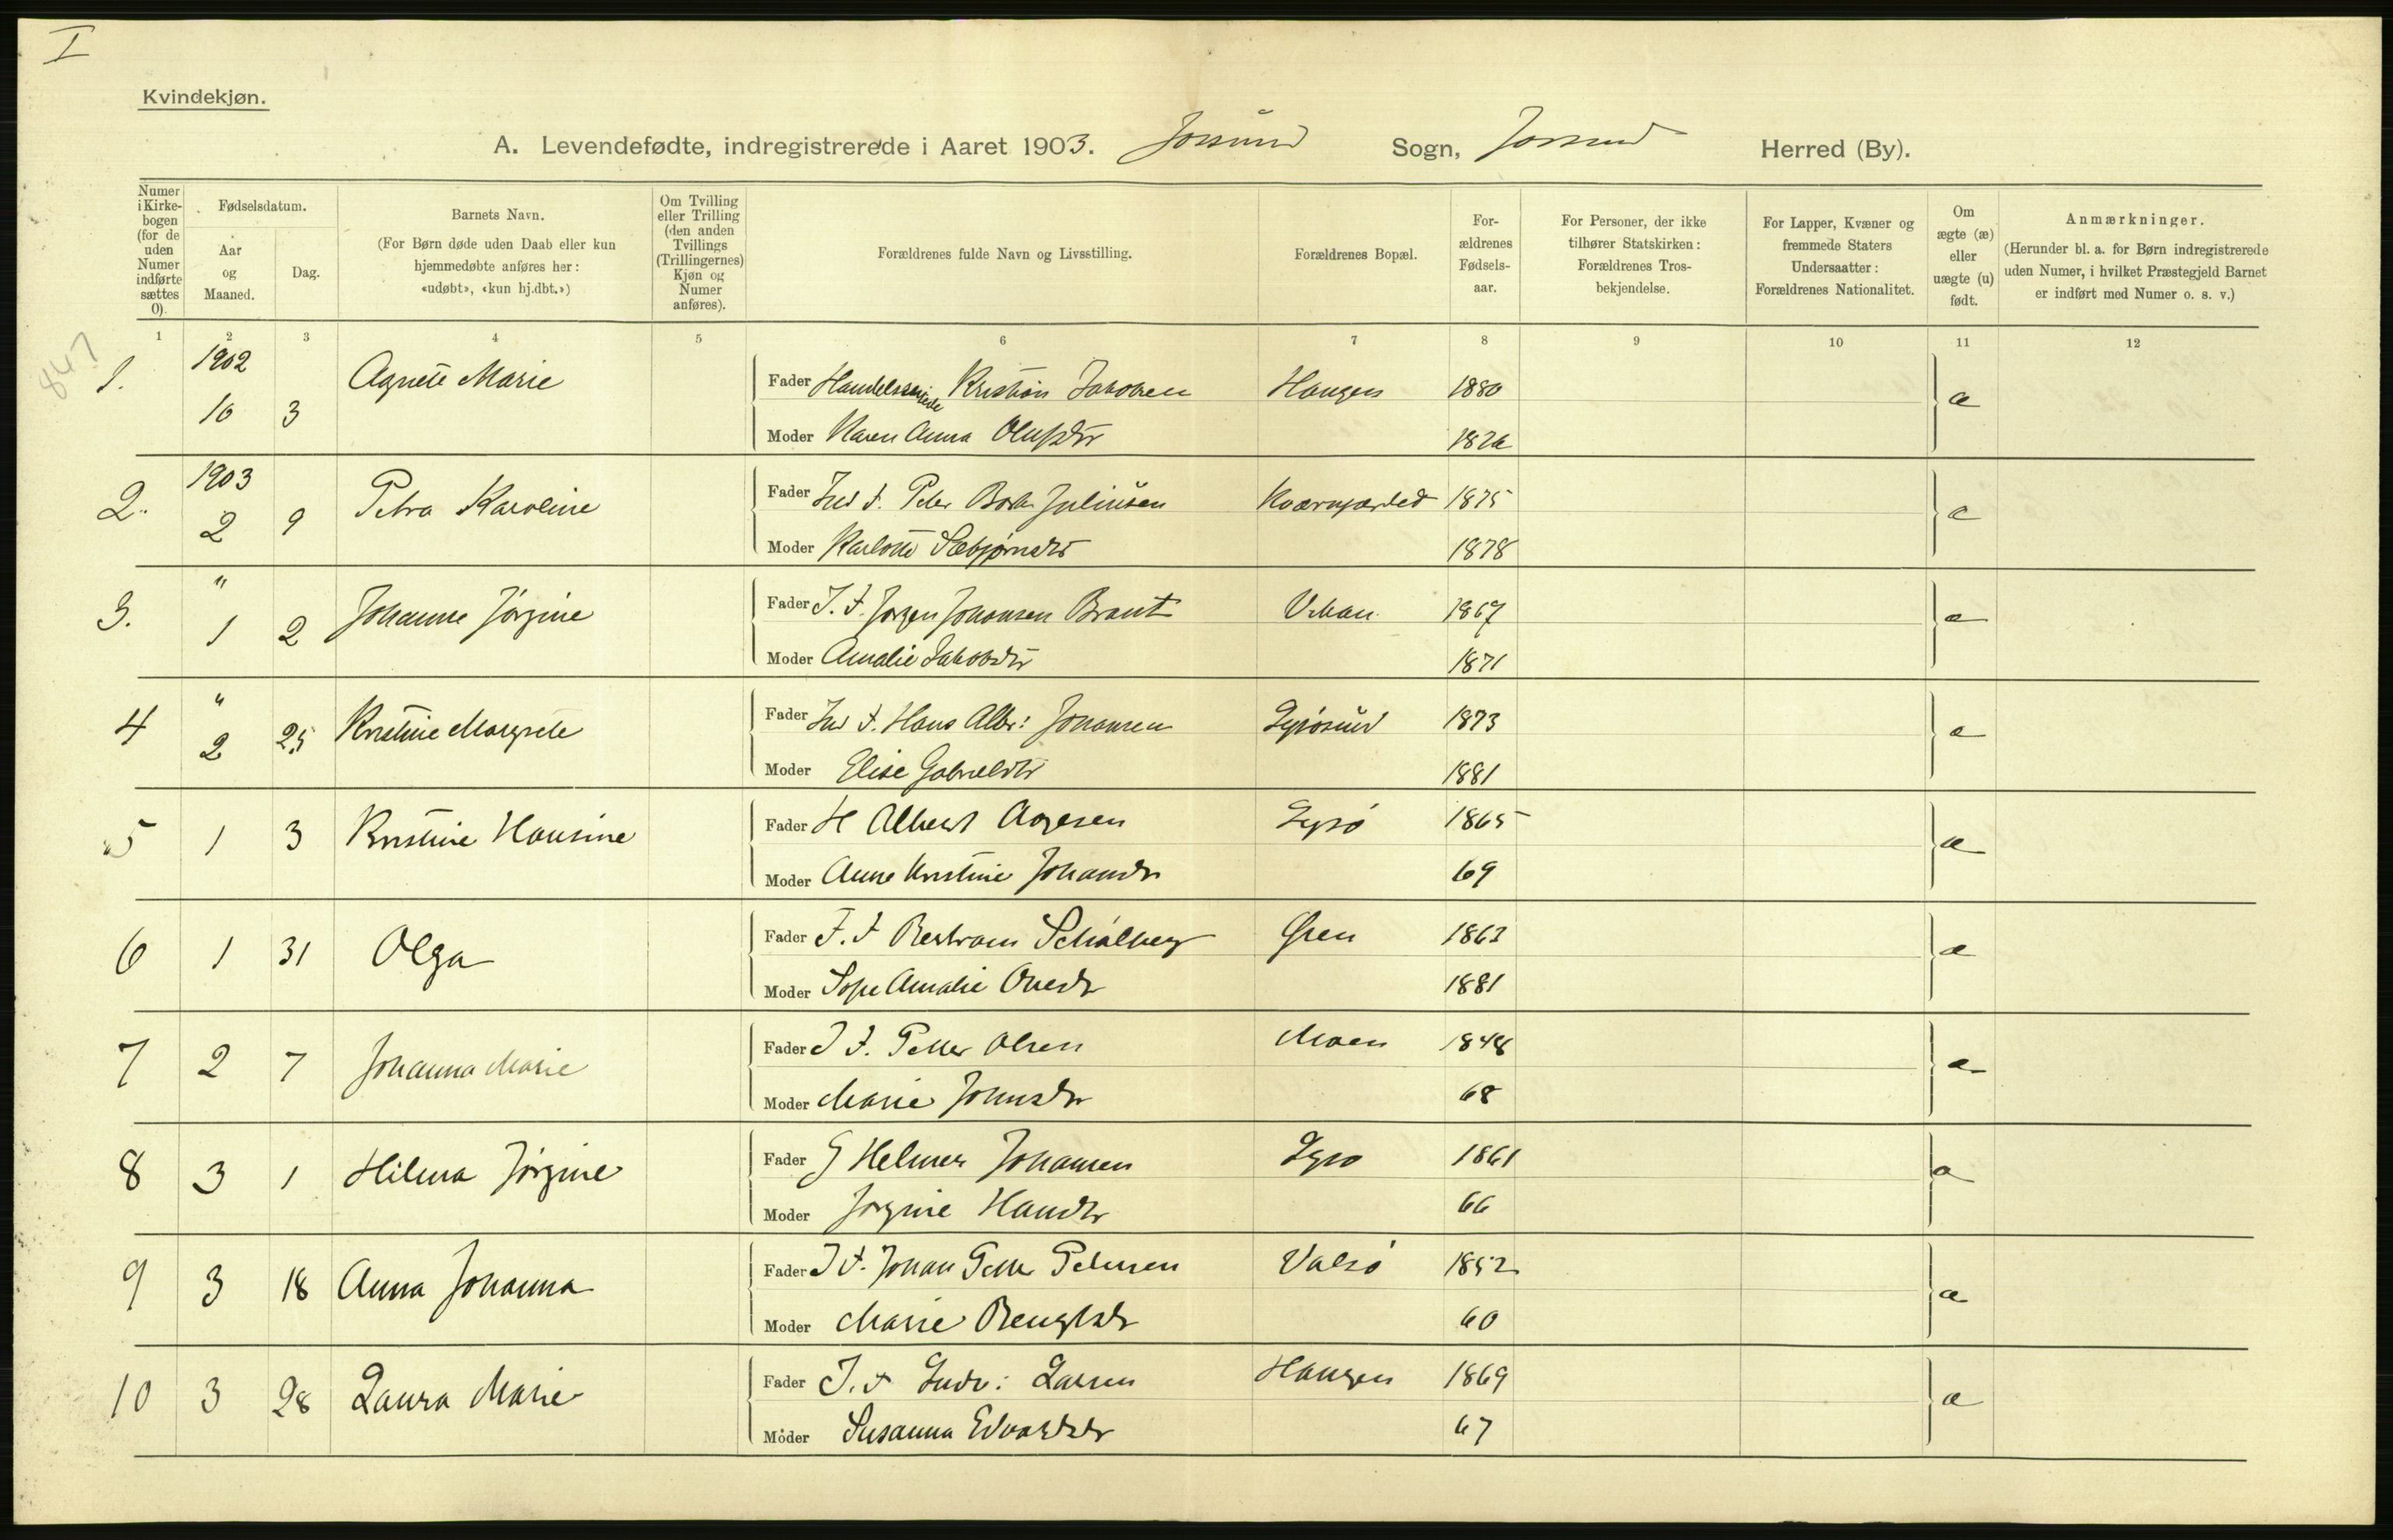 I
Kvindekjøn.
A. Levendefødte, indregistrerede i Aaret 1903. Jossund Sogn, Jossund Herred (By).
Numer i Kirkebogen (for de uden Numer indførte sættes 0).
Fødselsdatum.
Aar og Maaned.
Dag.
Barnets Navn.
(For Børn døde uden Daab eller kun hjemmedøbte anføres her: «udøbt», «kun hj.dbt.»)
Om Tvilling eller Trilling (den anden Tvillings (Trillingernes) Kjøn og Numer anføres).
Forældrenes fulde Navn og Livsstilling.
Forældrenes Bopæl.
For-ældrenes Fødsels-aar.
For Personer, der ikke tilhører Statskirken: Forældrenes Tros-bekjendelse.
For Lapper, Kvæner og fremmede Staters Undersaatter: Forældrenes Nationalitet.
Om ægte (æ) eller uægte (u) født.
Anmærkninger.
(Herunder bl. a. for Børn indregistrerede uden Numer, i hvilket Præstegjeld Barnet er indført med Numer o. s. v.)
1 2 3 4 5 6 7 8 9 10 11 12
847
1. 1902 10 3 Agnete Marie Fader Kristian Jakobsen Haugen 1880 æ
Moder Karen Anna Olufsdtr
2. 1903 2 9 Petra Karoline Fader Ind F. Peter Juliusen 1875 æ
Moder Karlotte Sæbjørnsdtr 1878
3. " 1 2 Johanne Jørgine Fader I. F. Jørgen Johansen Brant 1867 æ
Moder Amalie Jakobsdtr 1871
4 " 2 25 Kristine Margrete Fader Ind F. Hans Albr: Johansen Lysøsund 1873 æ
Moder Elise Gabrielsdtr 1881
5 1 3 Kristine Hansine Fader H Albert Aagesen Lysø 1865 æ
Moder Anne Kristine Johansdtr 69
6 1 31 Olga Fader F. F Bertram Schølberg 1863 æ
Moder Sofie Amalie Ovesdtr 1881
7 2 7 Johanna Marie Fader I F. Petter Olsen Moen 1848 æ
Moder Marie Johnsdtr 68
8 3 1 Hilma Jørgine Fader G Helmer Johansen Lysø 1861 æ
Moder Jørgine Hansdtr 66
9 3 18 Anna Johanna Fader I F. Johan Petter Petersen Valsø 1852 æ
Moder Marie Bengtsdtr 60
10 3 28 Laura Marie Fader I. F Ludv: Larsen Haugen 1869 æ
Moder Susanna Edvardsdtr 67